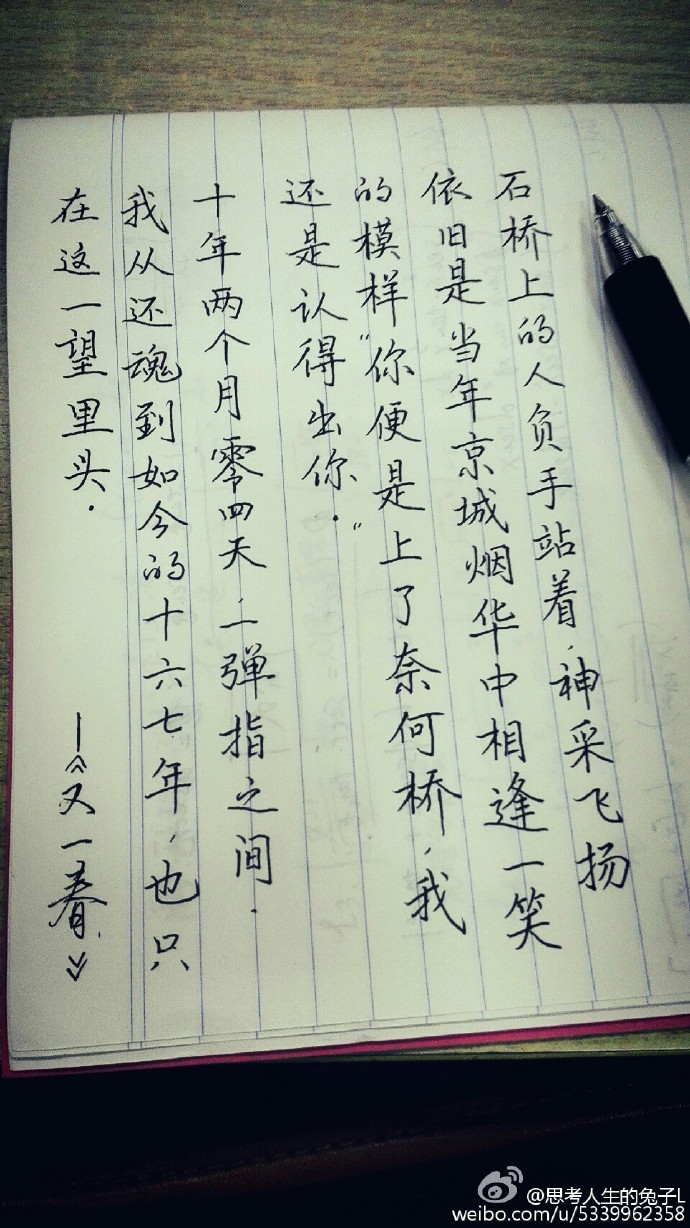 石桥上的人负手站着，神采飞扬
依旧是当年京城烟华中相逢一笑
的模样“你便是上了奈何桥，我
还是认得出你.”
十年两个月零四天，一弹指之间.
我从还魂到如今的十六七年，也只
在这一望里头.
—《又一春》
@思考人生的兔子L
weibo.com/u/5339962358